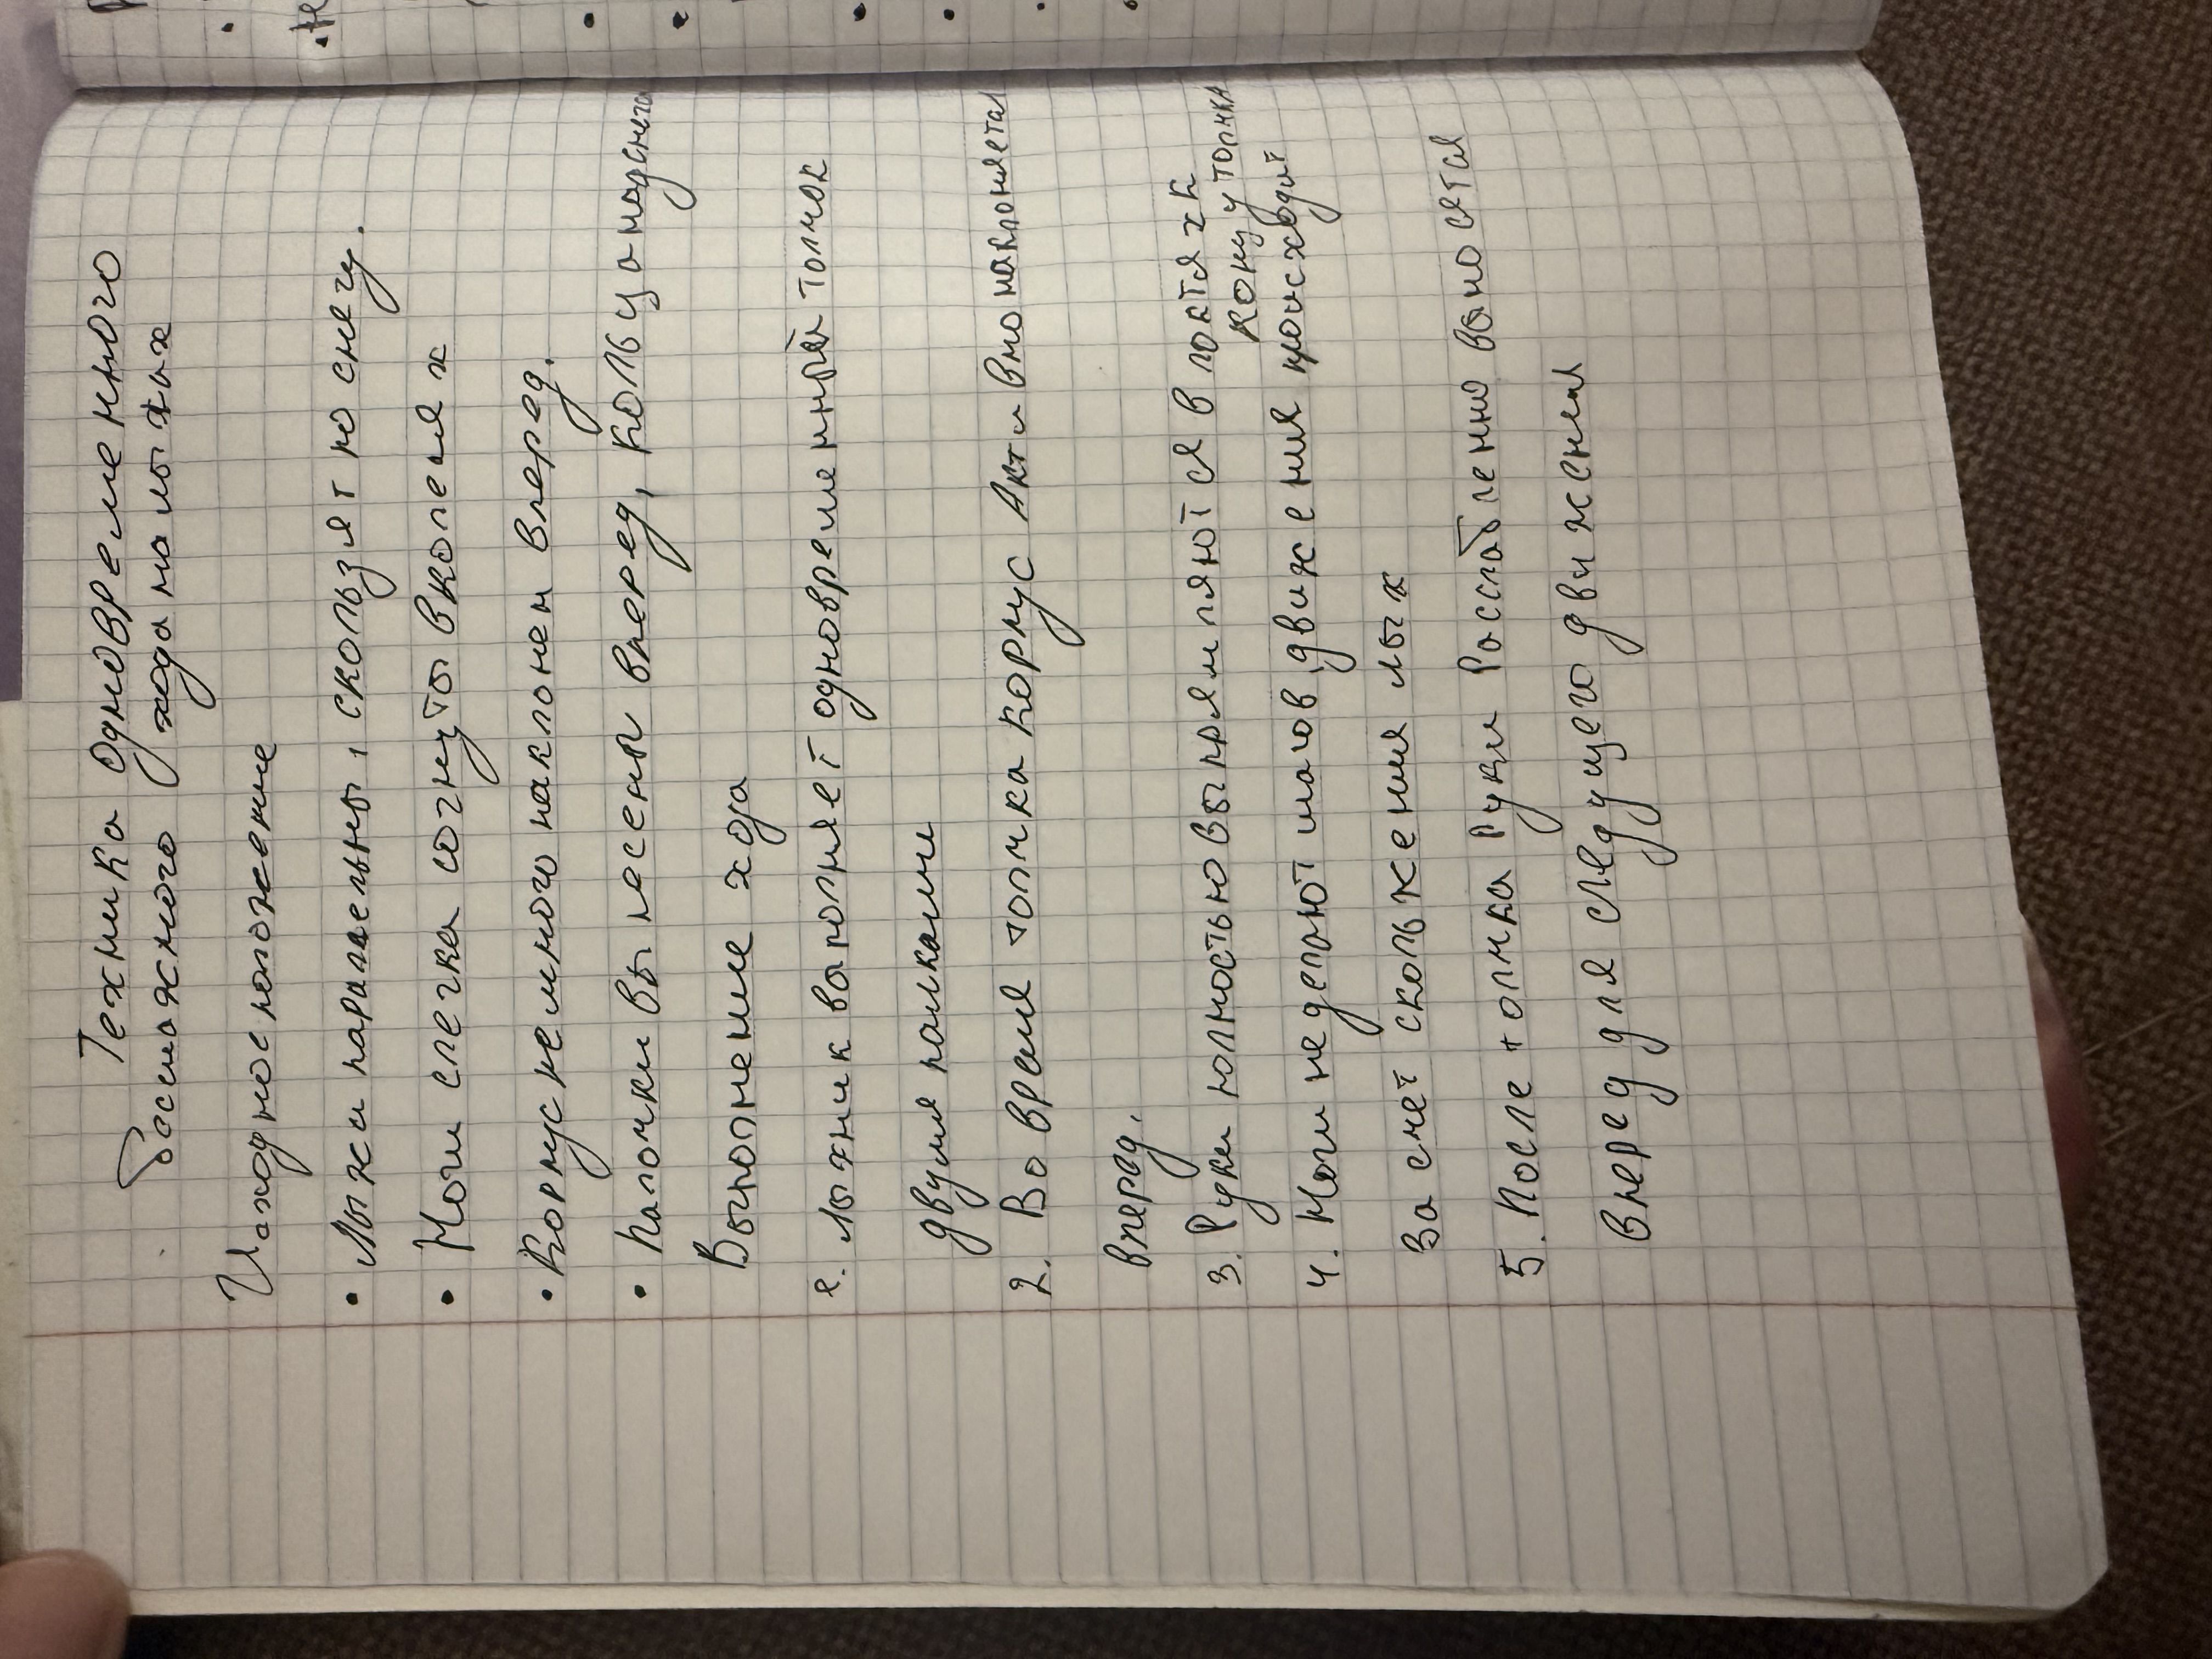 Техника одновременного
бесшажного хода на лыжах
Исходное положение
• Лыжи паралельны, скользят по снегу.
• Ноги слегка согнуты в коленях
• Корпус немного наклонен вперед.
• Палочки вынесены вперед, кольца над снега
Выполнение хода
1. Лыжник выполняет одновременный толчок
двумя палками
2. Во время толчка корпус Активно наклоняется
вперед.
3. Руки полностью выпрямляются в локтях к
концу толчка
4. Ноги не делают шагов, движения происходит
За счет скольжения лыж
5. После толчка Руки Расслабленно выносятся
Вперед для следущего движения